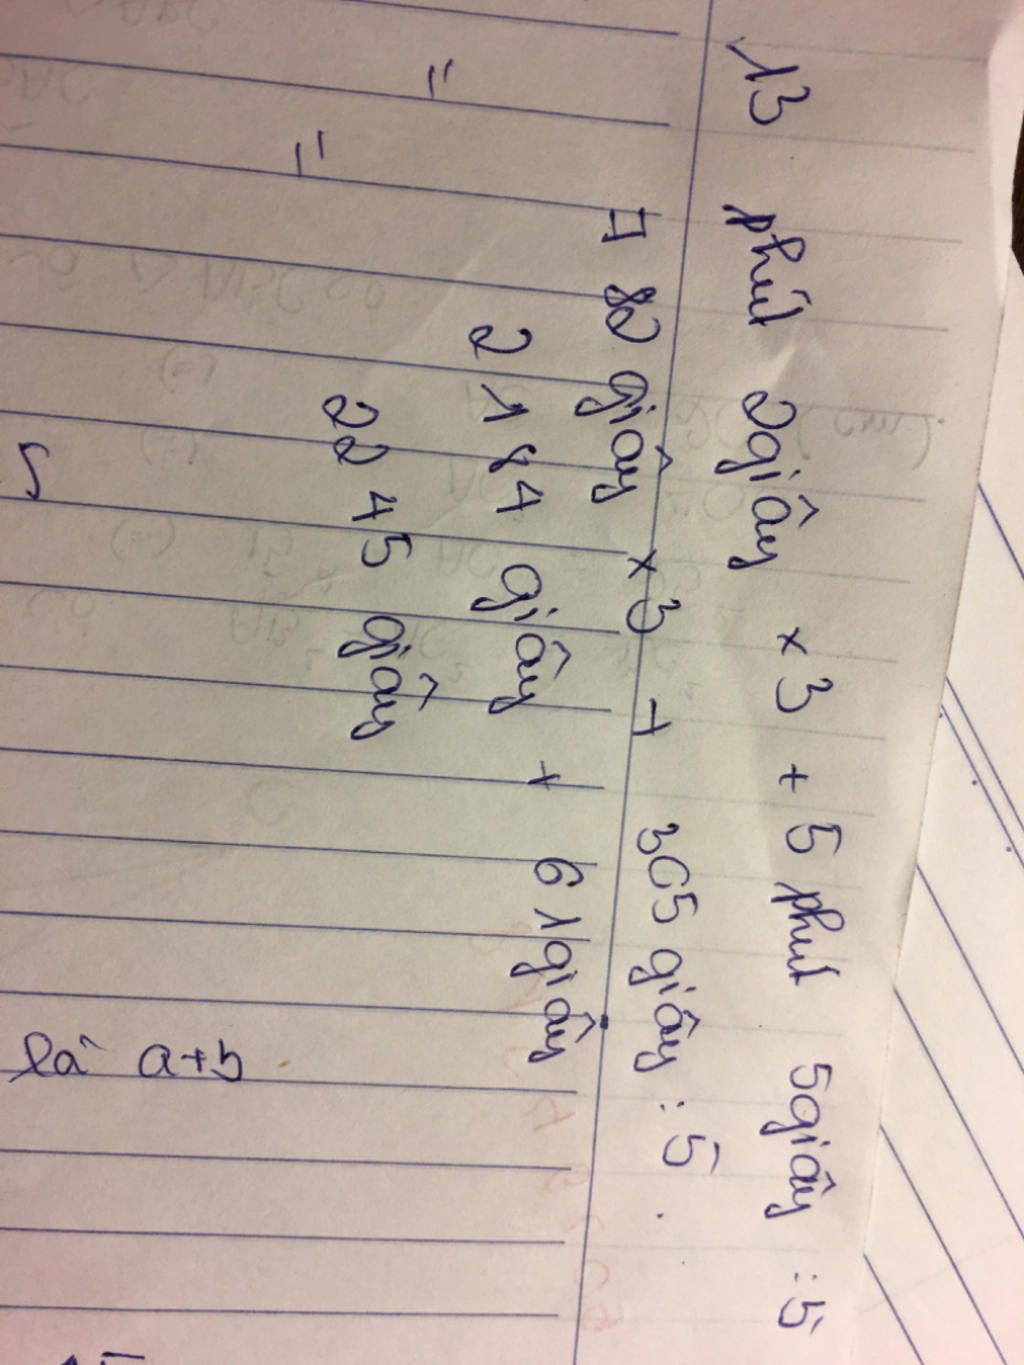 13 phút 2giây x 3 + 5 phút 5giây : 5
782 giây x 3 + 305 giây : 5
= 2184 giây + 61giây
= 2245 giây
là a+b